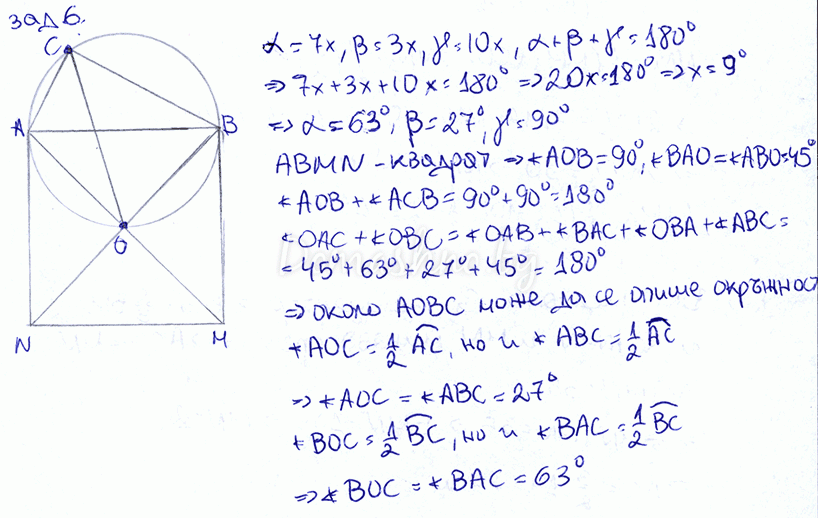 зад 6.
C
A
B
O
N
M
α=7x, β=3x, γ=10x, α+β+γ=180°
⇒ 7x+3x+10x=180° ⇒ 20x=180° ⇒ x=9°
⇒ α=63°, β=27°, γ=90°
ABMN – квадрат ⇒ ∢AOB=90°, ∢BAO=∢ABO=45°
∢AOB + ∢ACB = 90°+90°=180°
∢OAC + ∢OBC = ∢OAB + ∢BAC + ∢OBA + ∢ABC =
= 45°+63°+27°+45°=180°
⇒ около AOBC може да се опише окръжност
∢AOC = 1/2 AC, но и ∢ABC = 1/2 AC
⇒ ∢AOC = ∢ABC = 27°
∢BOC = 1/2 BC, но и ∢BAC = 1/2 BC
⇒ ∢BOC = ∢BAC = 63°